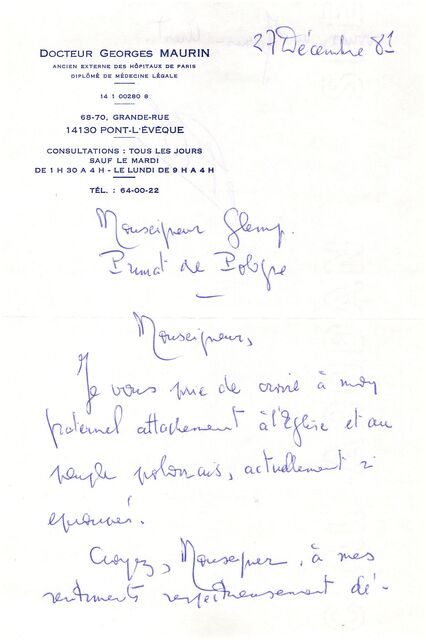 DOCTEUR GEORGES MAURIN
ANCIEN EXTERNE DES HÔPITAUX DE PARIS
DIPLÔMÉ DE MÉDECINE LÉGALE
14 1 00260 8
68-70, GRANDE-RUE
14130 PONT-L'ÉVÊQUE
CONSULTATIONS : TOUS LES JOURS
SAUF LE MARDI
DE 1 H 30 A 4 H - LE LUNDI DE 9 H A 4 H
TÉL. : 64-00-22
27 Décembre 81
Monseigneur Glemp.
Primat de Pologne
Monseigneur,
Je vous prie de croire à mon
fraternel attachement à l'Eglise et au
peuple polonais, actuellement si
éprouvés.
Croyez, Monseigneur, à mes
sentiments respectueusement dé-